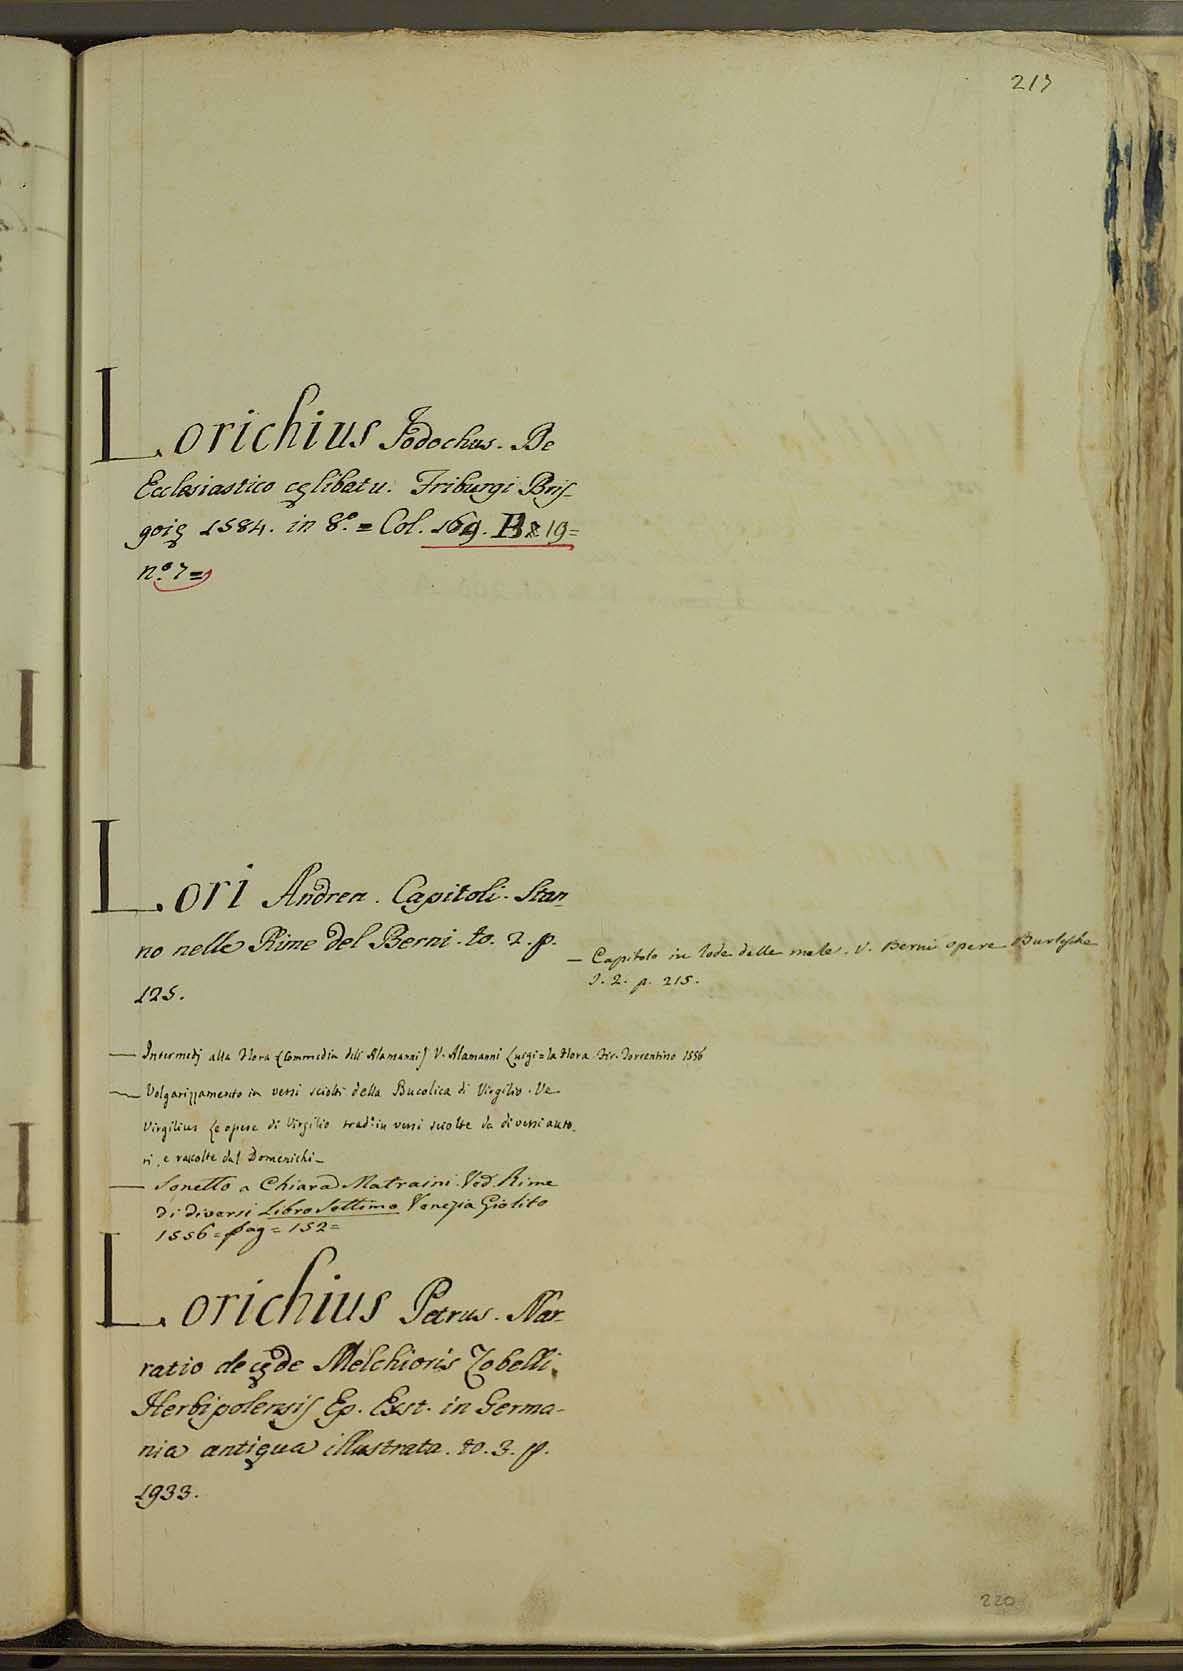 213
Lorichius Jodochus. De
Ecclesiastico cęlibatu. Friburgi Bris-
goię 1584. in 8.° = Col. 169. B 19 =
n.° 7 =
Lori Andrea. Capitoli. Stan-
no nelle Rime del Berni. to. 2. p.
125.
— Capitolo in lode delle mele. V. Berni opere Burlesche
T. 2. p. 215.
— Intermedj alla Flora (Commedia dell'Alamanni) V. Alamanni Luigi = la Flora Fir. Torrentino 1556
— Volgarizzamento in versi sciolti della Bucolica di Virgilio. Ve
Virgilius Le opere di Virgilio trad.e in versi sciolte da diversi auto-
ri, e raccolte dal Domenichi —
— Sonetto a Chiara Matraini. Ved. Rime
di diversi Libro Settimo Venezia Giolito
1556 = pag = 152 =
Lorichius Petrus. Nar-
ratio de cęde Melchioris Zobelli
Herbipolensis Ep. Exst. in Germa-
nia antiqua illustrata. to. 3. p.
1933.
220